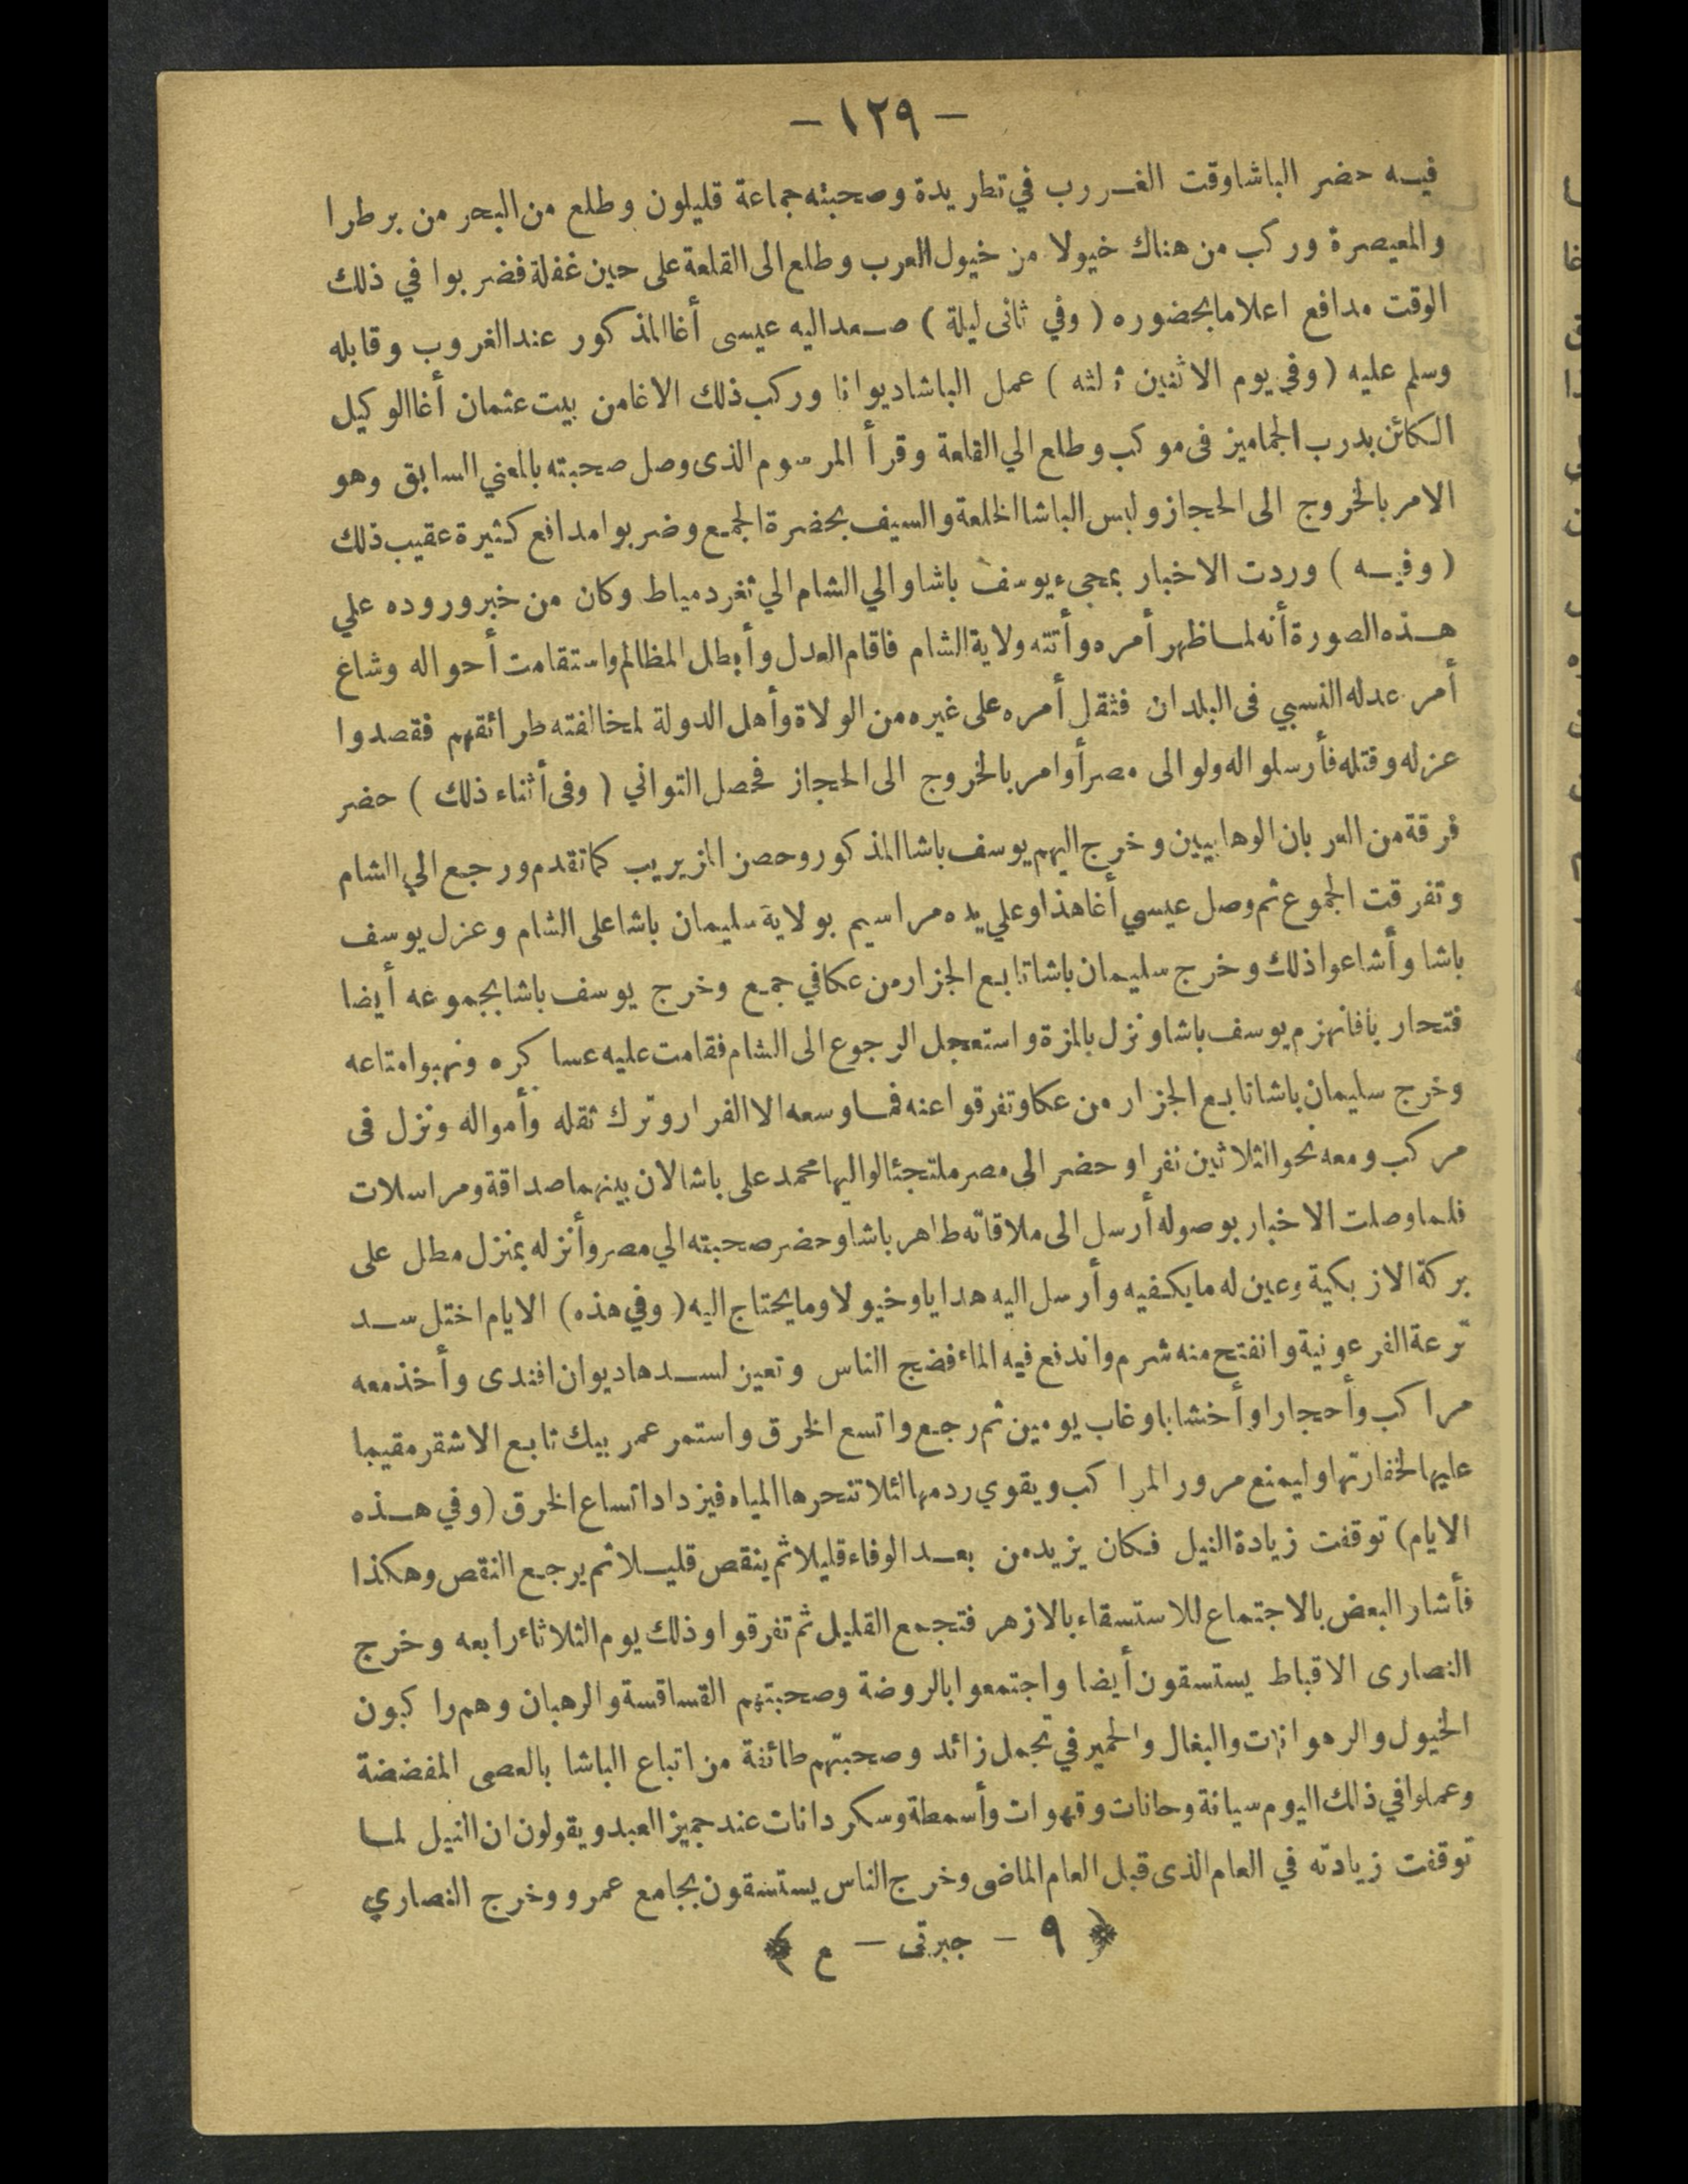 — ١٢٩ —
فيه حضر الباشا وقت الغررب في تطريدة وصحبته جماعة قليلون وطلع من البحر من بر طرا
والمعيصرة وركب من هناك خيولا من خيول العرب وطلع الى القلعة على حين غفلة فضربوا في ذلك
الوقت مدافع اعلاما بحضوره ( وفي ثانى ليلة ) صعد اليه عيسى أغا المذكور عند الغروب وقابله
وسلم عليه ( وفي يوم الاثنين ثالثه ) عمل الباشا ديوانا وركب ذلك الاغا من بيت عثمان أغا الوكيل
الكائن بدرب الجماميز فى موكب وطلع الي القلعة وقرأ المرسوم الذى وصل صحبته بالمعني السابق وهو
الامر بالخروج الى الحجاز ولبس الباشا الخلعة والسيف بحضرة الجمع وضربوا مدافع كثيرة عقيب ذلك
( وفيه ) وردت الاخبار بمجيء يوسف باشا والي الشام الي ثغر دمياط وكان من خبر وروده علي
هذه الصورة أنه لما ظهر أمره وأتته ولاية الشام فاقام العدل وأبطل المظالم واستقامت أحواله وشاغ
أمر عدله النسبي فى البلدان فثقل أمره على غيره من الولاة وأهل الدولة لمخالفته طرائقهم فقصدوا
عزله وقتله فأرسلوا له ولوالى مصر أوامر بالخروج الى الحجاز فحصل التواني ( وفى أثناء ذلك ) حضر
فرقة من العربان الوهابيين وخرج اليهم يوسف باشا المذكور وحصن المزيريب كما تقدم ورجع الي الشام
وتفرقت الجموع ثم وصل عيسي أغا هذا وعلي يده مراسيم بولاية سليمان باشا على الشام وعزل يوسف
باشا وأشاعوا ذلك وخرج سليمان باشا تابع الجزار من عكا في جمع وخرج يوسف باشا بجموعه أيضا
فتحاربا فانهزم يوسف باشا ونزل بالمزة واستعجل الرجوع الى الشام فقامت عليه عساكره ونهبوا متاعه
وخرج سليمان باشا تابع الجزار من عكا وتفرقوا عنه فما وسعه الا الفرار وترك ثقله وأمواله ونزل فى
مركب ومعه نحو الثلاثين نفرا وحضر الى مصر ملتجئا لواليها محمد على باشا لان بينهما صداقة ومراسلات
فلما وصلت الاخبار بوصوله أرسل الى ملاقاته طاهر باشا وحضر صحبته الي مصر وأنزله بمنزل مطل على
بركة الازبكية وعين له ما يكفيه وأرسل اليه هدايا وخيولا وما يحتاج اليه ( وفي هذه ) الايام اختل سد
ترعة الفرعونية وانفتح منه شرم واندفع فيه الماء فضج الناس وتعين لسدها ديوان افندى وأخذ معه
مراكب وأحجارا وأخشابا وغاب يومين ثم رجع واتسع الخرق واستمر عمر بيك تابع الاشقر مقيما
عليها لخفارتها وليمنع مرور المراكب ويقوي ردمها لئلا تنحرها المياه فيزداد اتساع الخرق ( وفي هذه
الايام ) توقفت زيادة النيل فكان يزيد من بعد الوفاء قليلا ثم ينقص قليلا ثم يرجع النقص وهكذا
فأشار البعض بالاجتماع للاستسقاء بالازهر فتجمع القليل ثم تفرقوا وذلك يوم الثلاثاء رابعه وخرج
النصارى الاقباط يستسقون أيضا واجتمعوا بالروضة وصحبتهم القساقسة والرهبان وهم راكبون
الخيول والرهوانات والبغال والحمير في تجمل زائد وصحبتهم طائفة من اتباع الباشا بالعصى المفضضة
وعملوا في ذلك اليوم سيانة وحانات وقهوات وأسمطة وسكردانات عند جميز العبد ويقولون ان النيل لما
توقفت زيادته في العام الذى قبل العام الماضى وخرج الناس يستسقون بجامع عمرو وخرج النصاري
﴿ ٩ — جبرتى — ع ﴾